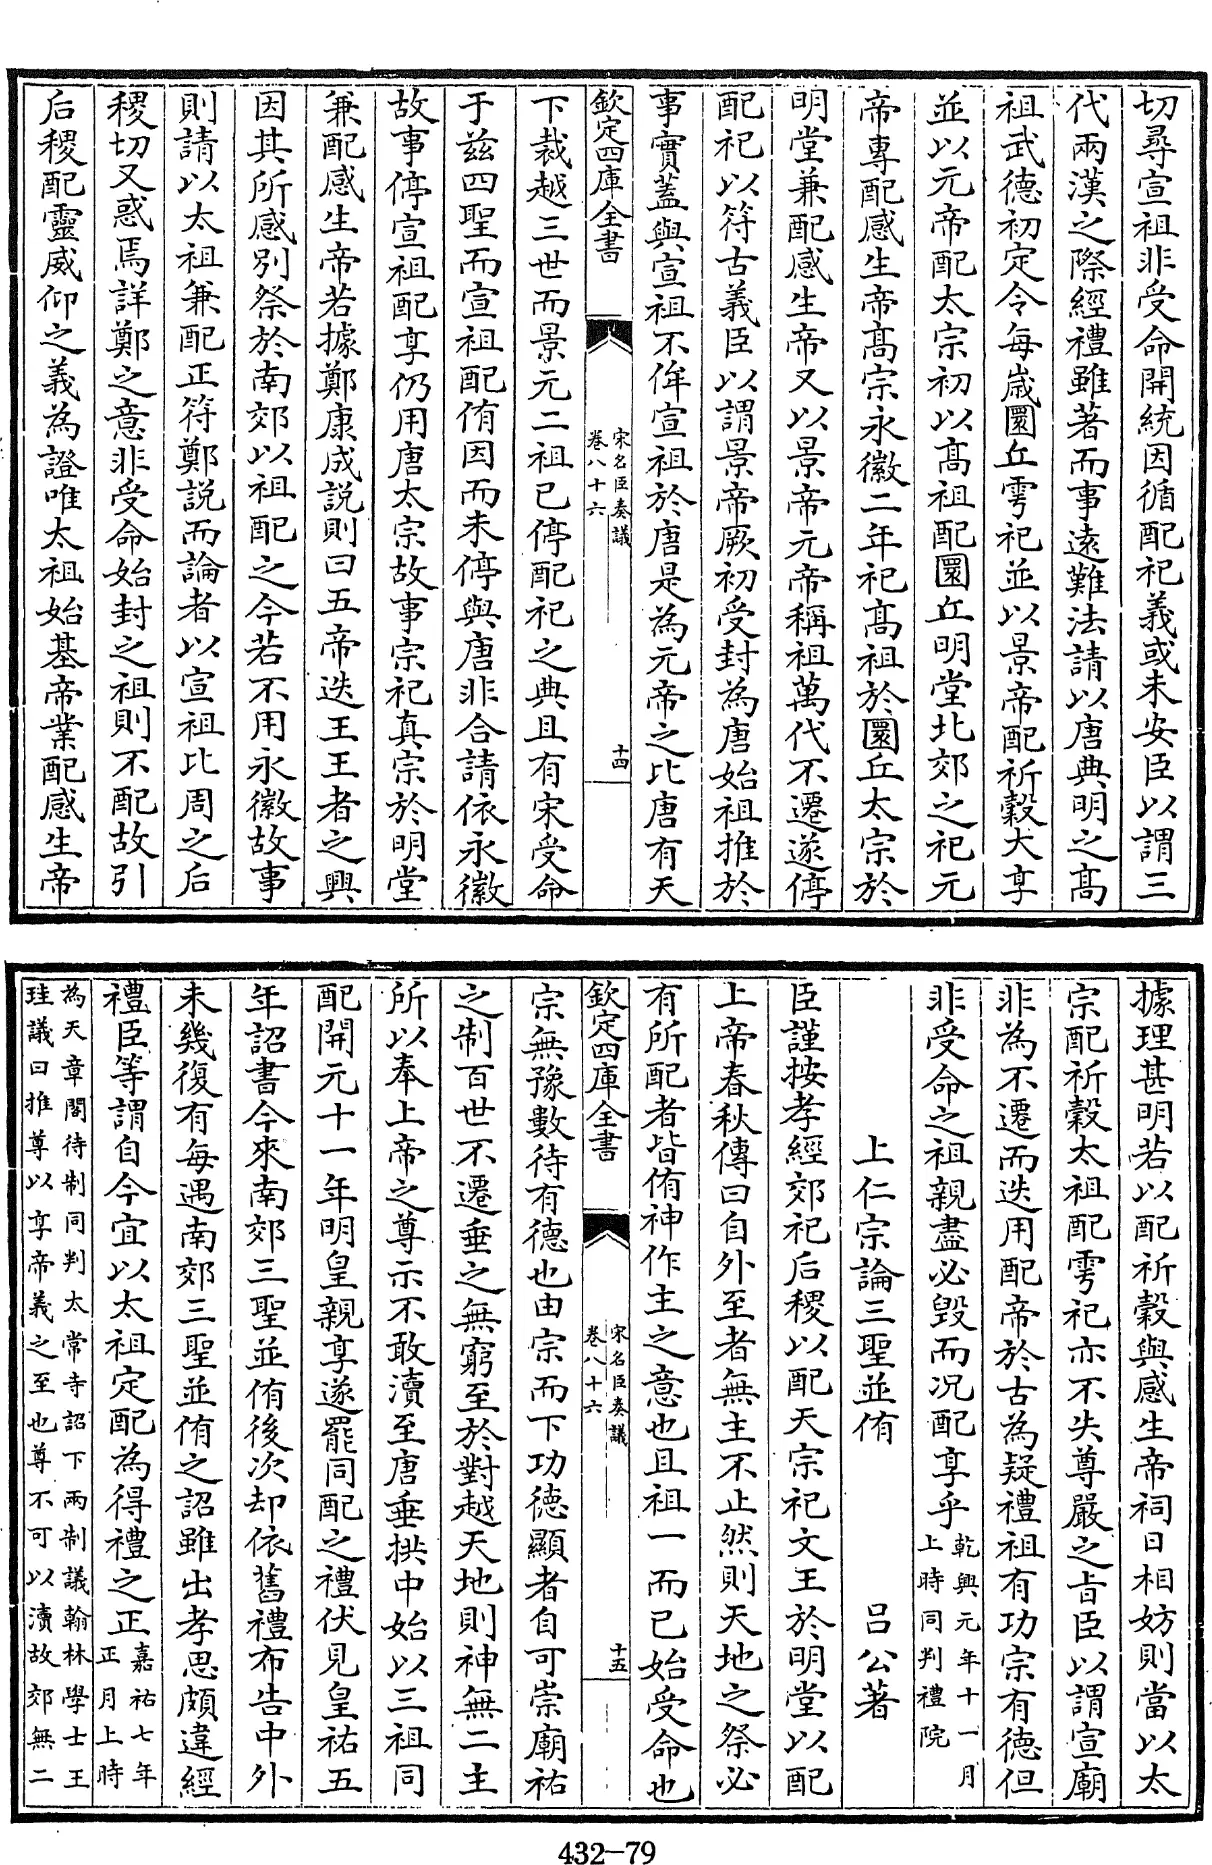 切尋宣祖非受命開統因循配祀義或未安臣以謂三
代兩漢之際經禮雖著而事遠難法請以唐典明之高
祖武德初定令每歲圜丘雩祀並以景帝配祈穀大享
並以元帝配太宗初以高祖配圜丘明堂北郊之祀元
帝專配感生帝高宗永徽二年祀高祖於圜丘太宗於
明堂兼配感生帝又以景帝元帝稱祖萬代不遷遂停
配祀以符古義臣以謂景帝厥初受封為唐始祖推於
事實蓋與宣祖不侔宣祖於唐是為元帝之比唐有天
欽定四庫全書
宋名臣奏議
卷八十六
十四
下裁越三世而景元二祖已停配祀之典且有宋受命
于兹四聖而宣祖配侑因而未停與唐非合請依永徽
故事停宣祖配享仍用唐太宗故事宗祀真宗於明堂
兼配感生帝若據鄭康成說則曰五帝迭王王者之興
因其所感別祭於南郊以祖配之今若不用永徽故事
則請以太祖兼配正符鄭說而論者以宣祖比周之后
稷切又惑焉詳鄭之意非受命始封之祖則不配故引
后稷配靈威仰之義為證唯太祖始基帝業配感生帝
據理甚明若以配祈穀與感生帝祠日相妨則當以太
宗配祈穀太祖配雩祀亦不失尊嚴之旨臣以謂宣廟
非為不遷而迭用配帝於古為疑禮祖有功宗有德但
非受命之祖親盡必毀而况配享乎乾興元年十一月
上時同判禮院
上仁宗論三聖並侑 吕公著
臣謹按孝經郊祀后稷以配天宗祀文王於明堂以配
上帝春秋傳曰自外至者無主不止然則天地之祭必
有所配者皆侑神作主之意也且祖一而已始受命也
欽定四庫全書
宋名臣奏議
卷八十六
十五
宗無豫數待有德也由宗而下功德顯者自可崇廟祐
之制百世不遷垂之無窮至於對越天地則神無二主
所以奉上帝之尊示不敢瀆至唐垂拱中始以三祖同
配開元十一年明皇親享遂罷同配之禮伏見皇祐五
年詔書今來南郊三聖並侑後次却依舊禮布告中外
未幾復有每遇南郊三聖並侑之詔雖出孝思頗違經
禮臣等謂自今宜以太祖定配為得禮之正嘉祐七年
正月上時
為天章閣待制同判太常寺詔下兩制議翰林學士王
珪議曰推尊以享帝義之至也尊不可以瀆故郊無二
432-79